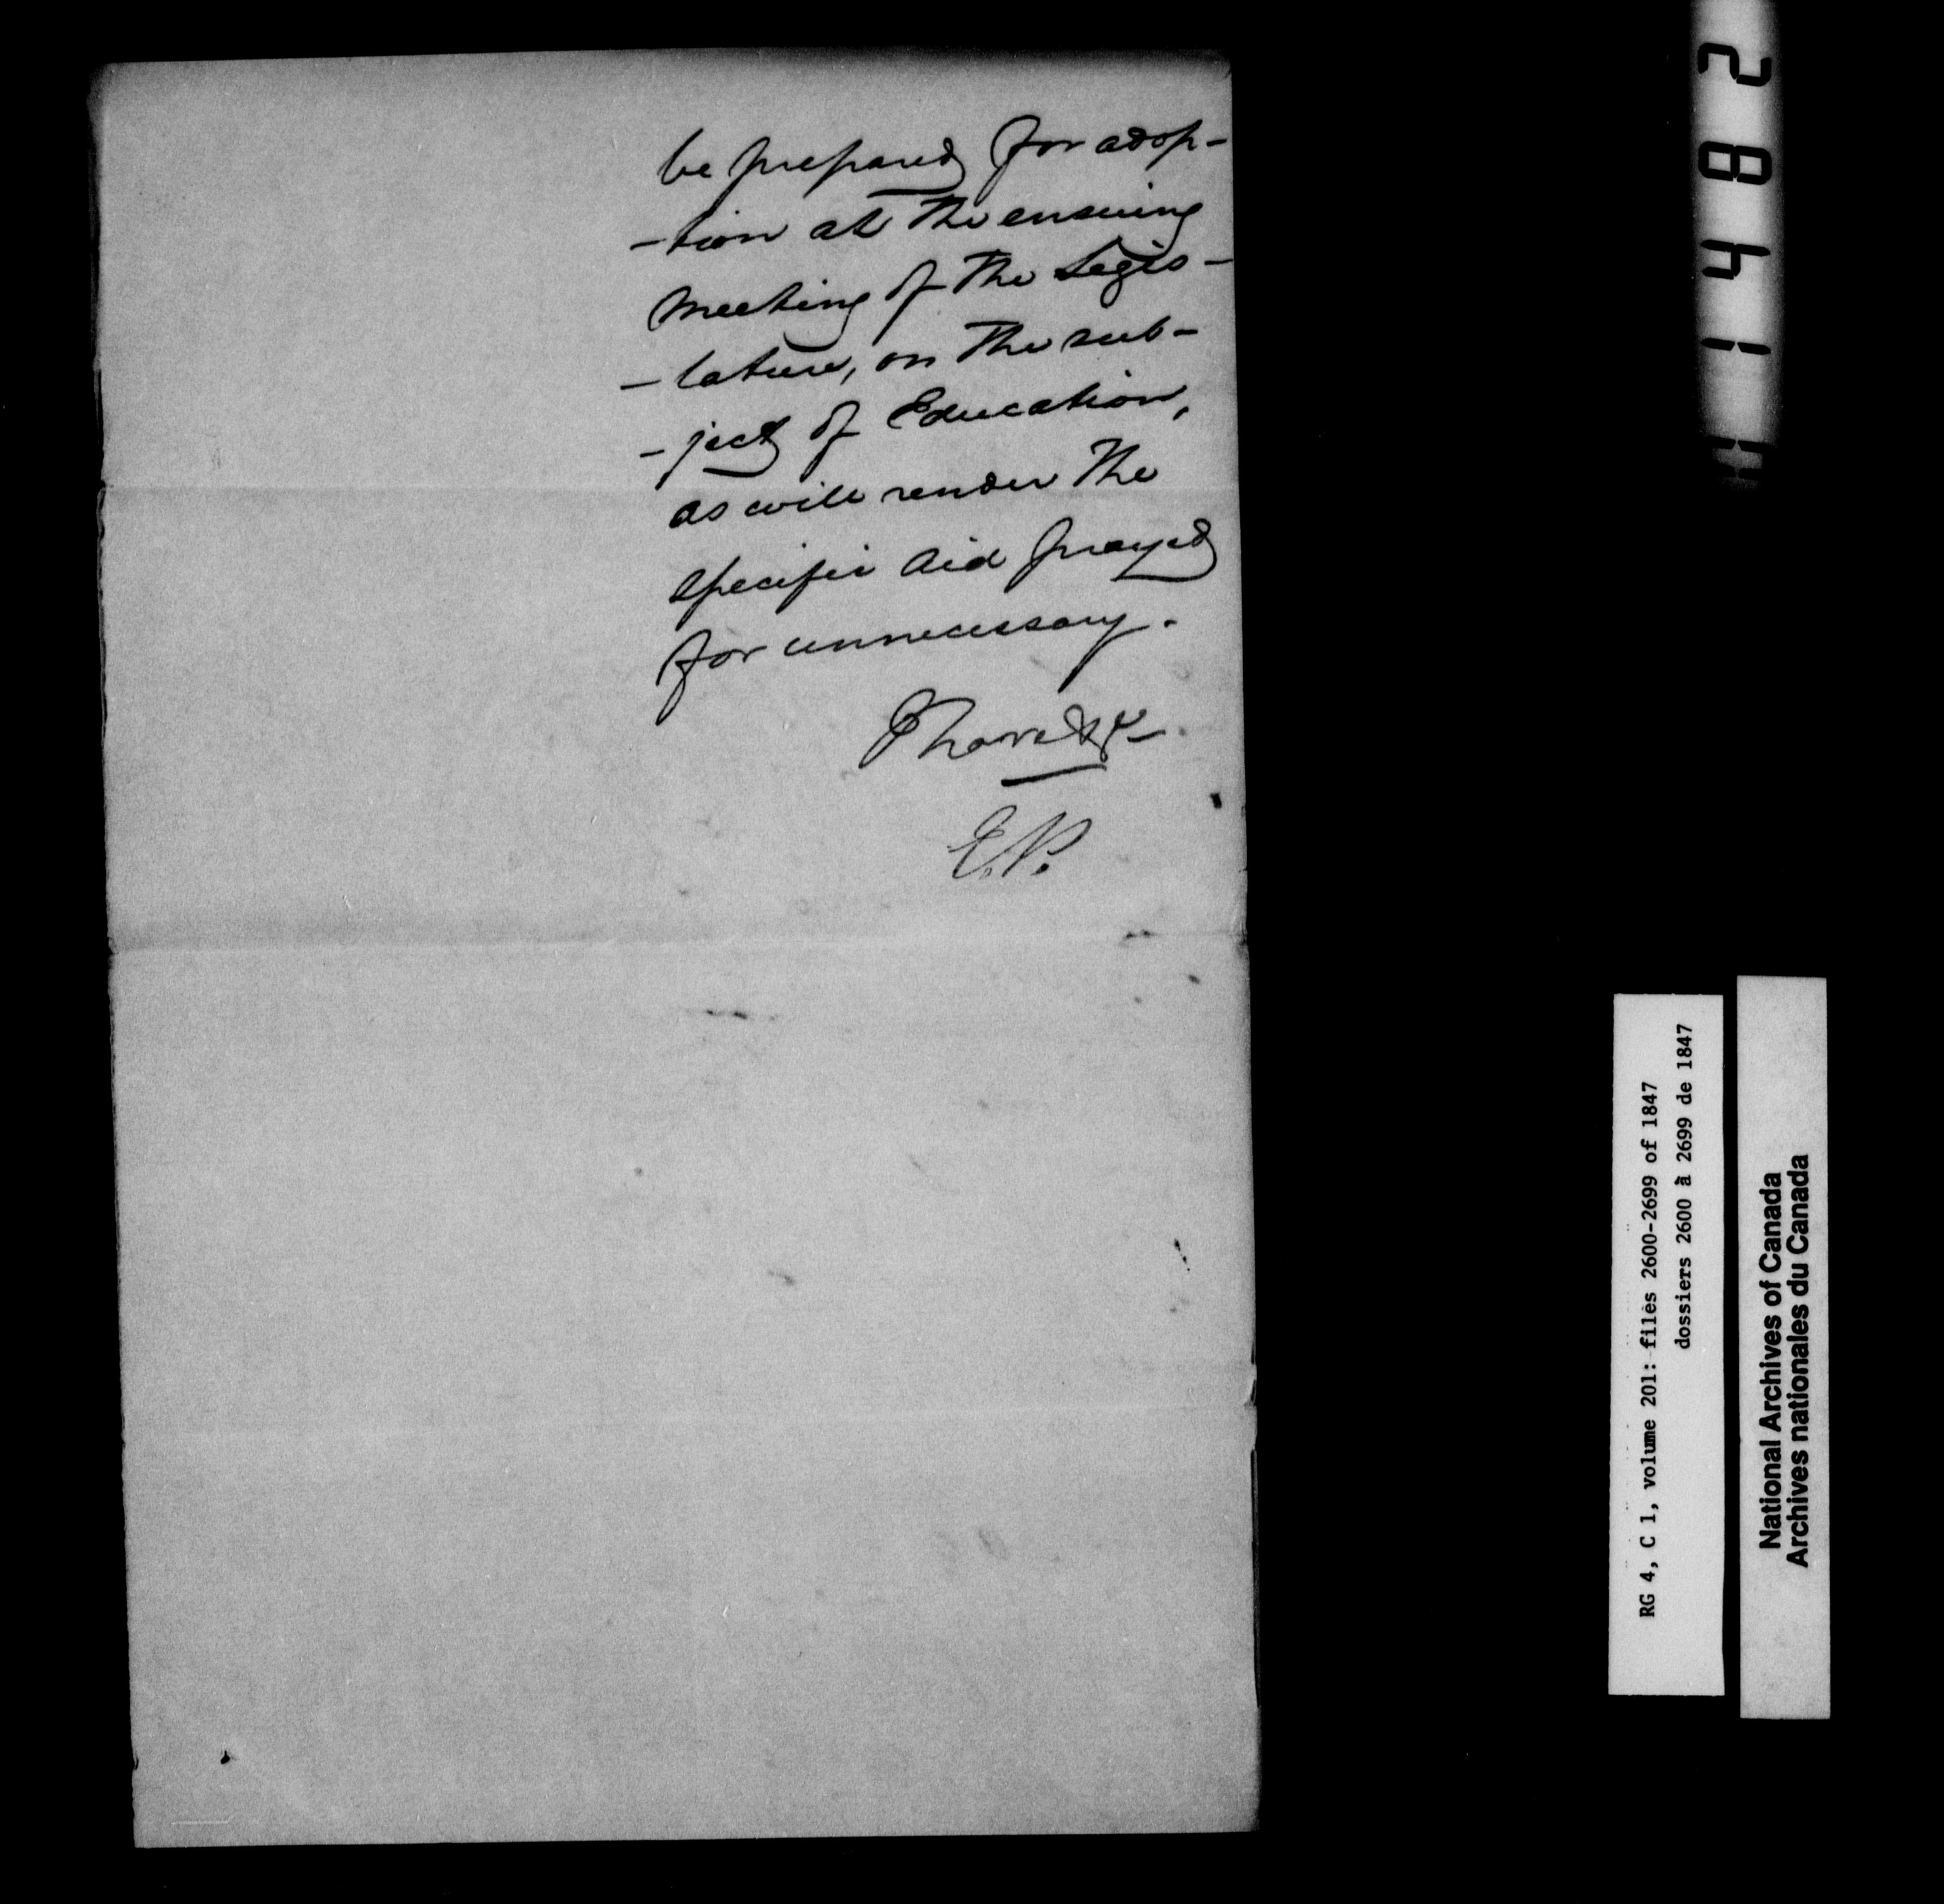 be prepared for adop-
-tion at the ensuing
meeting of the Legis-
-lature, on the sub-
-ject of Education,
as will render the
specific aid prayed
for unnecessary.
I have &c
E.P.
1482
RG 4, C 1, volume 201: files 2600-2699 of 1847
dossiers 2600 à 2699 de 1847
National Archives of Canada
Archives nationales du Canada